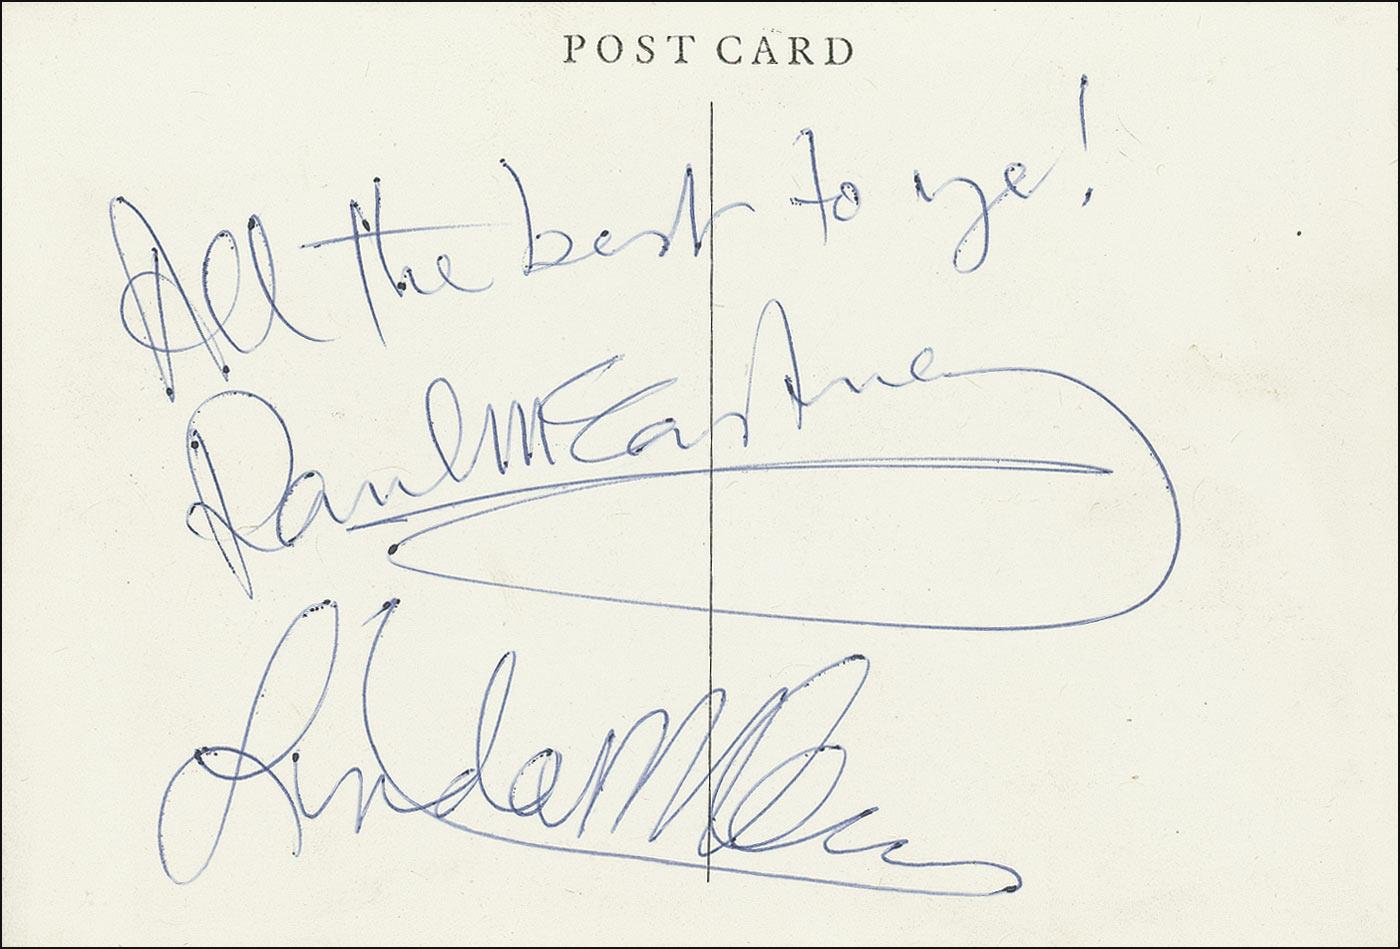 POST CARD
All the best to ye!
Paul McCartney
Linda Mc